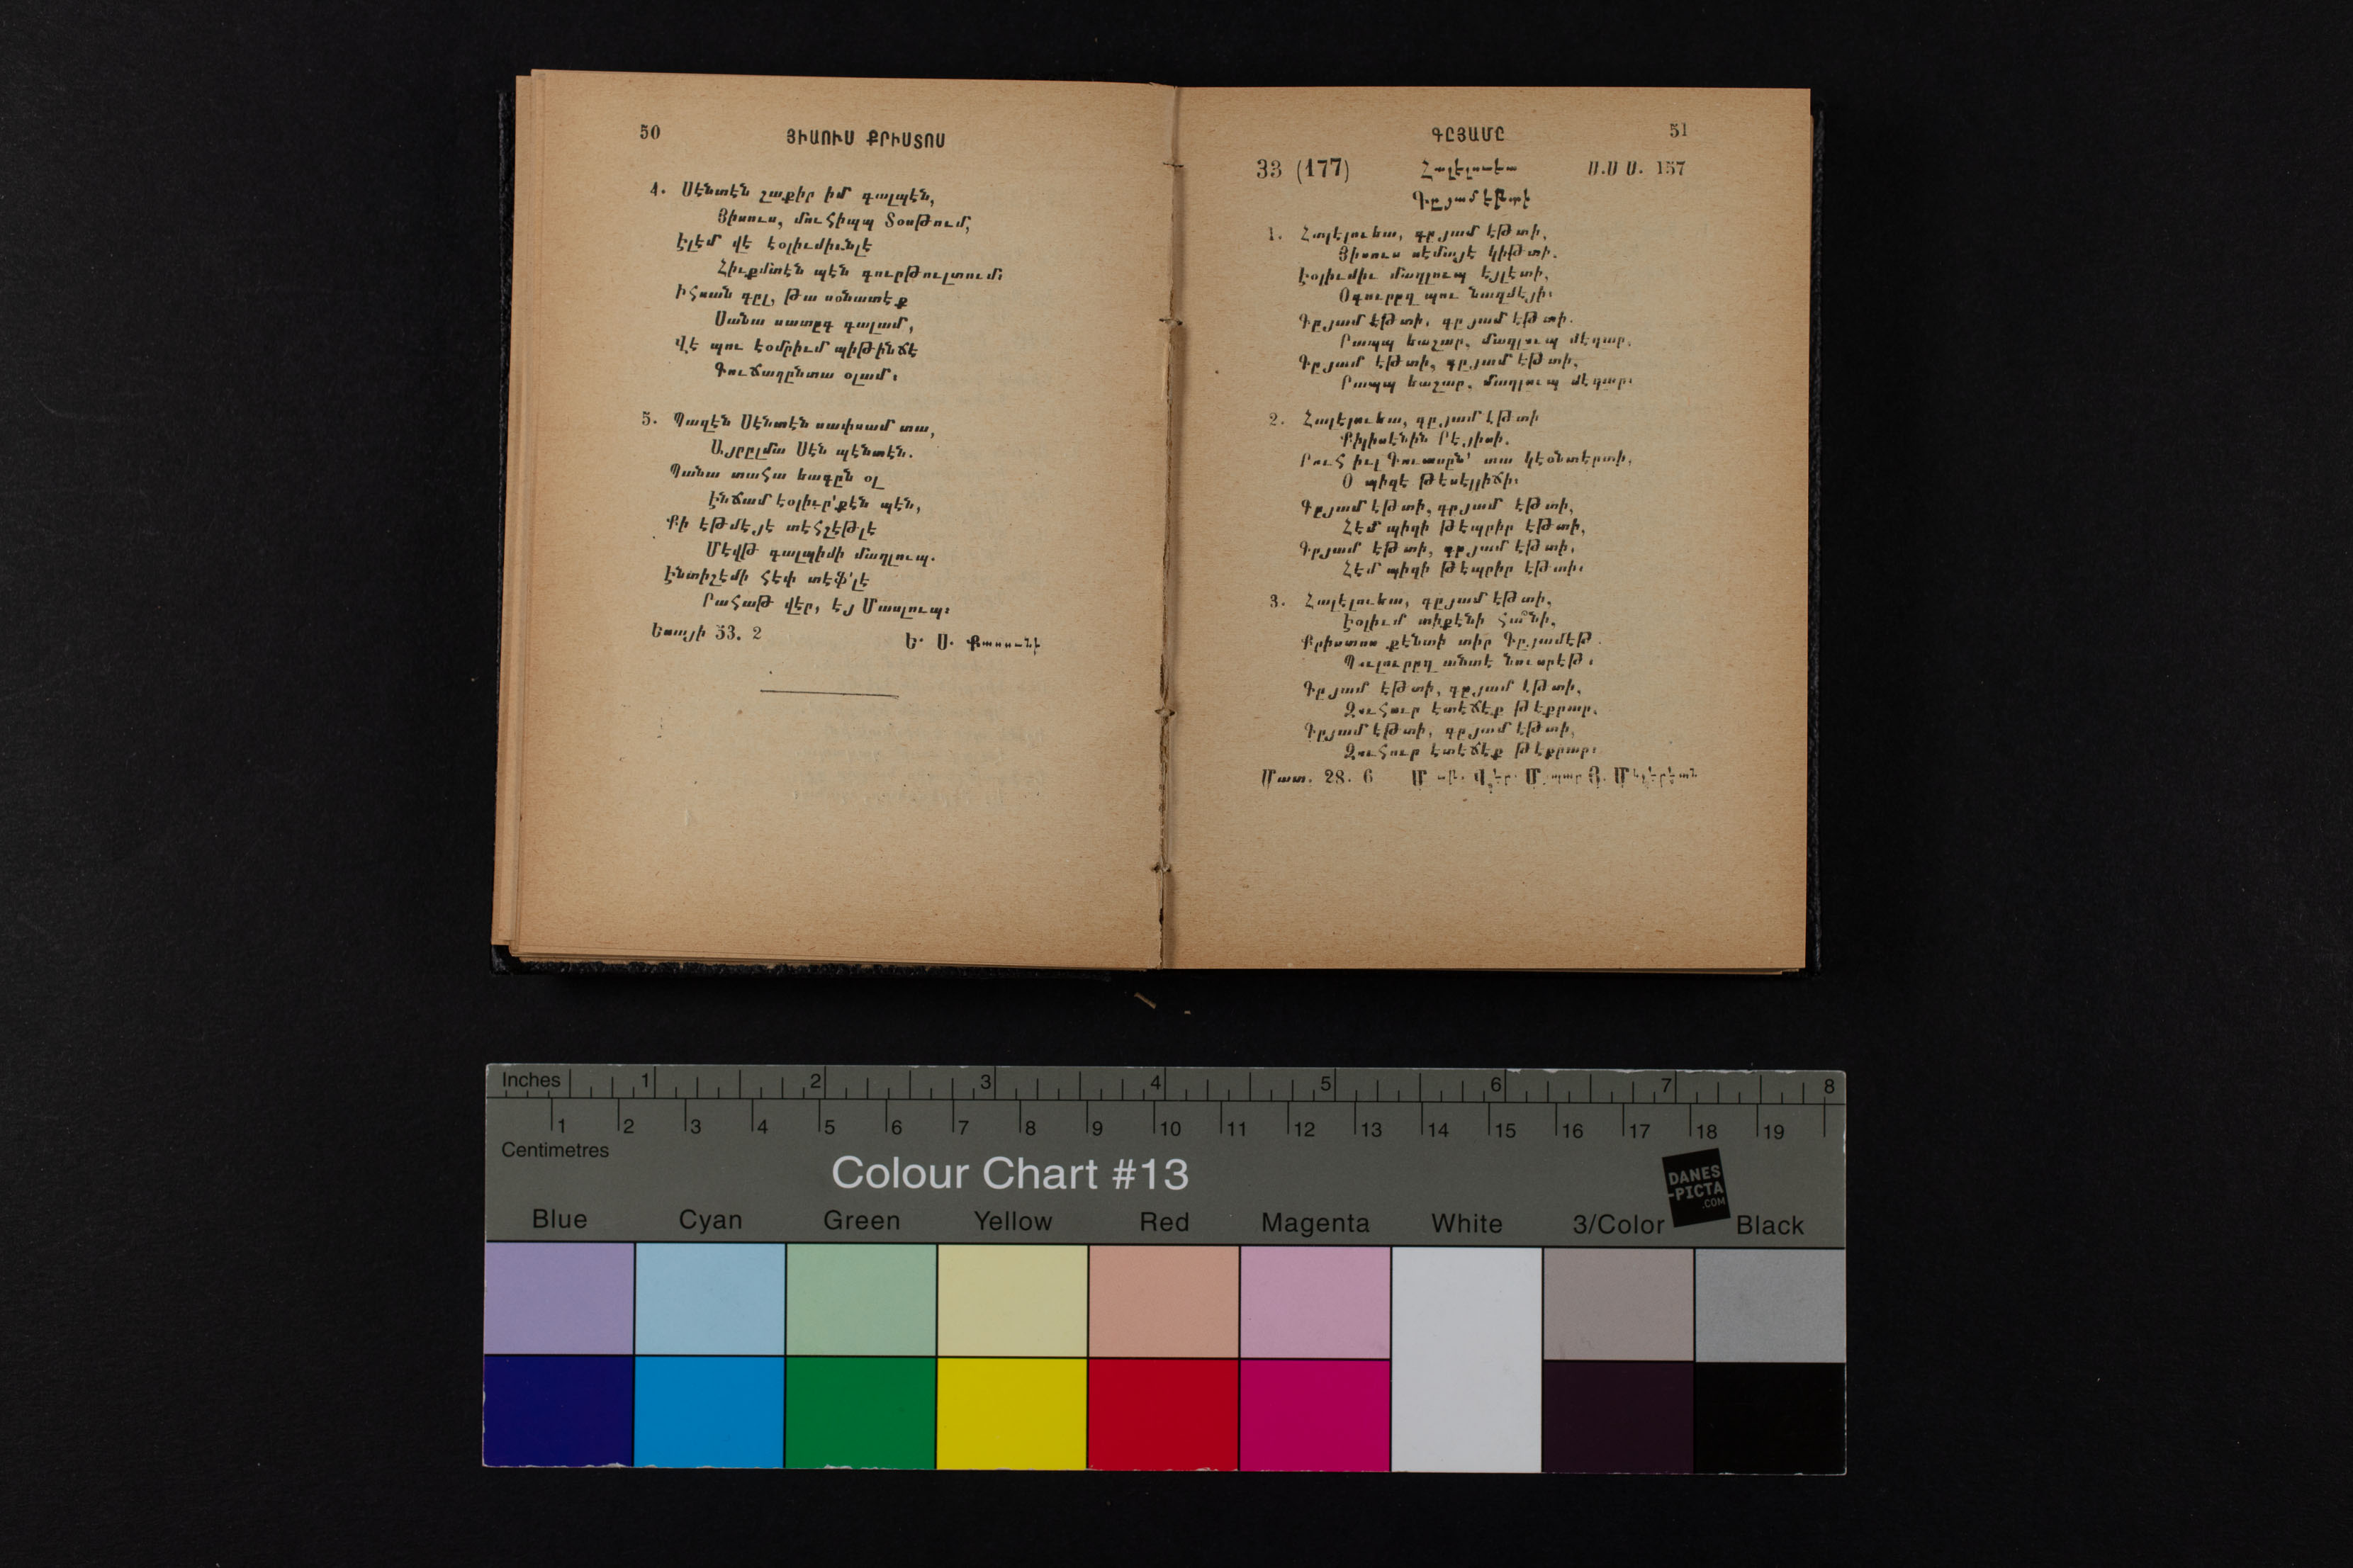 50 ՅԻՍՈՒՍ ՔՐԻՍՏՈՍ
4. Սէնտէն շաքիր իմ գալպէն,
Յիսուս, մուհիպպ Տօսթում,
Էլէմ վէ էօլիւմիւնլէ
Հիւքմտէն պէն գուրթուլտում։
Իհսան գըլ, թա սօնատէք
Սանա սատըգ գալամ,
Վէ պու էօմրիւմ պիթինճէ
Գուճաղընտա օլամ։
5. Պազէն Սէնտէն սափսամ տա,
Այրըլմա Սէն պէնտէն.
Պանա տահա եագըն օլ
Էնճամ էօլիւր՚քէն պէն,
Քի էթմէյէ տէհշէթլէ
Մէվթ գալպիմի մաղլուպ.
Էնտիշէմի հեփ տէֆ՚լէ
Րահաթ վէր, էյ Մասլուպ։
Եսայի 53. 2
Ե. Ս.
ԳԸՅԱՄԸ 51
33 (177) Հալէլուեա Ս.Ս Ս. 157
Գըյամ էթտի
1. Հալէլուեա, գըյամ էթտի,
Յիսուս սէմայէ կիթտի.
Էօլիւմիւ մաղլուպ էյլէտի,
Օգուրըզ պու նաղմէյի։
Գըյամ էթտի, գըյամ էթտի.
Րապպ եաշար, մաղլուպ մէզար,
Գըյամ էթտի, գըյամ էթտի,
Րապպ եաշար, մաղլուպ մէզար։
2. Հալէլուեա, գըյամ էթտի
Քիլիսէնին Րէյիսի.
Րուհ իւլ Գուտսըն՚ տա կէօնտէրտի,
Օ պիզէ թէսէլլիճի։
Գըյամ էթտի, գըյամ էթտի,
Հէմ պիզի թէպրիր էթտի,
Գըյամ էթտի, գըյամ էթտի,
Հէմ պիզի թէպրիր էթտի։
3. Հալէլուեա, գըյամ էթտի,
Էօլիւմ տիքէնի հա՞նի,
Քրիստոս քէնտի տիր Գըյամէթ.
Պուլուրըզ անտէ նուսրէթ։
Գըյամ էթտի, գըյամ էթտի,
Զուհուր էտէճէք թէքրար,
Գըյամ էթտի, գըյամ էթտի,
Զուհուր էտէճէք թէքրար։
Մատ. 28. 6
Inches 1 2 3 4 5 6 7 8
1 2 3 4 5 6 7 8 9 10 11 12 13 14 15 16 17 18 19
Centimetres
Colour Chart #13
DANES
-PICTA
.COM
Blue Cyan Green Yellow Red Magenta White 3/Color Black